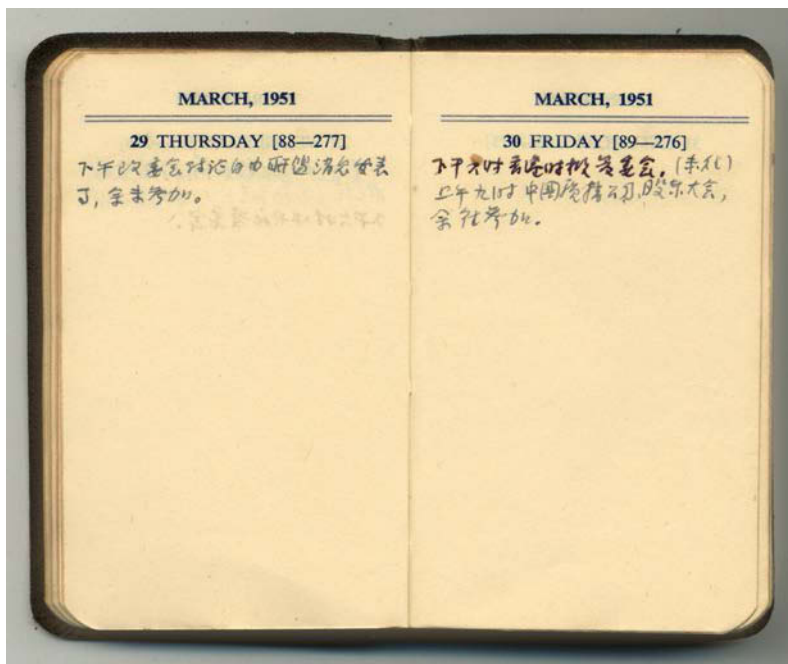 MARCH, 1951
29 THURSDAY [88—277]
下午改委会讨论自由联盟消息发表
了,余未参加。
MARCH, 1951
30 FRIDAY [89—276]
下午六时香港时报董委会。(未到)
上午九时中国广播公司股东大会,
余往参加。